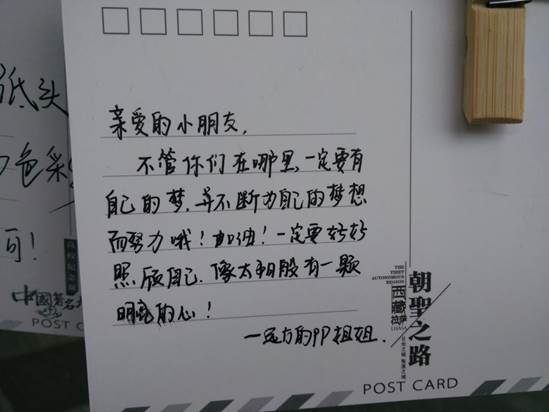 亲爱的小朋友,
不管你们在哪里,一定要有
自己的梦,并不断为自己的梦想
而努力哦!加油!一定要好好
照顾自己.像太阳般有一颗
明亮的心!
—远方的PP姐姐.
THE TIBET
AUTONOMOUS
REGION
西藏
朝聖之路
POST CARD
低头
色彩
可!
中國
POST CARD